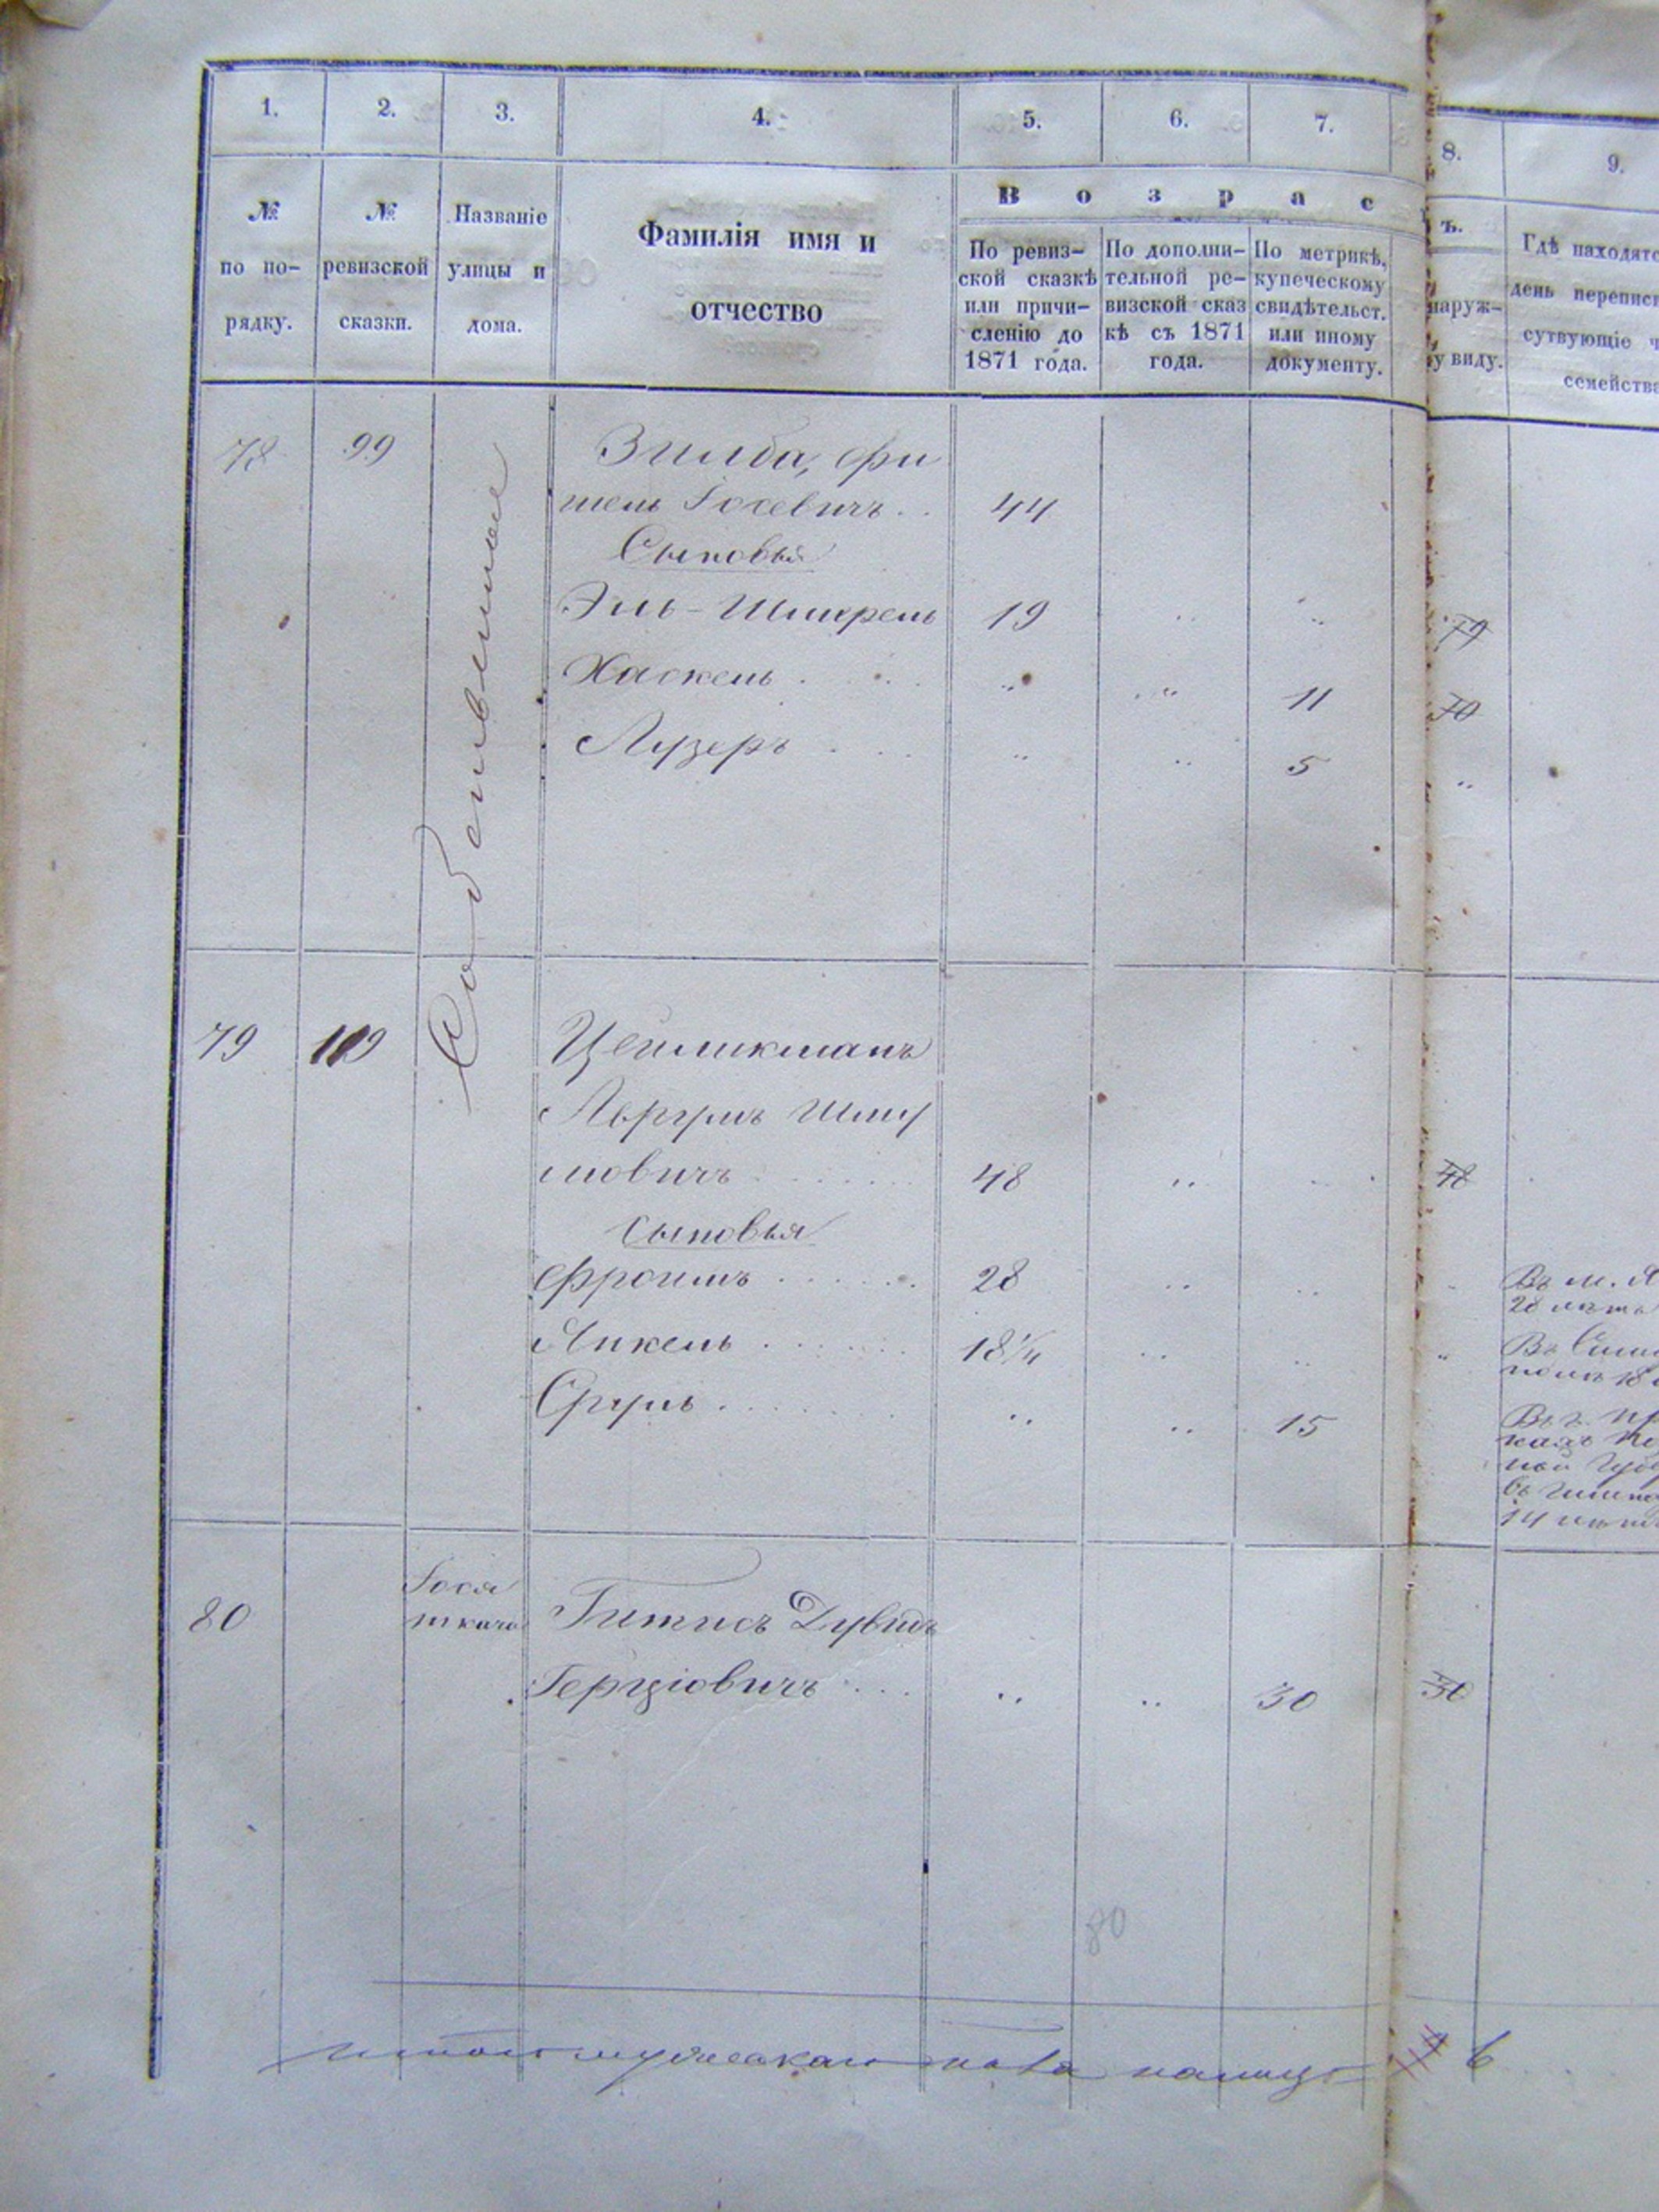 1. 2. 3. 4. 5. 6. 7. 8. 9.
№ по по-рядку.
№ ревизской сказки.
Названіе улицы и дома.
Фамилія имя и отчество
Возрас ъ.
По ревиз-
ской сказкѣ
или причи-
сленію до
1871 года.
По дополни-
тельной ре-
визской сказ
кѣ съ 1871
года.
По метрикѣ,
купеческому
свидѣтельст.
или иному
документу.
наруж-
у виду.
Гдѣ находятс
день переписи
сутвующіе ч
семейства
Собственные
78 99 Зилба, Фи
шель Іосевичъ . . 44
Сыновья
Эль-Шмерель 19 19
Хаскель . . . 11 10
Лузеръ . . . 5
79 109 Цейликманъ
Лергумъ Шму
ловичъ 48 48
Сыновья
Фроимъ 28
Янкель 18 1/4
Сруль 15
Въ м. Я
28 лѣтъ
14 лѣтъ
80 Гитисъ Дувидъ
Герціовичъ 30 30
80
Итого мужескаго пола налицо 6